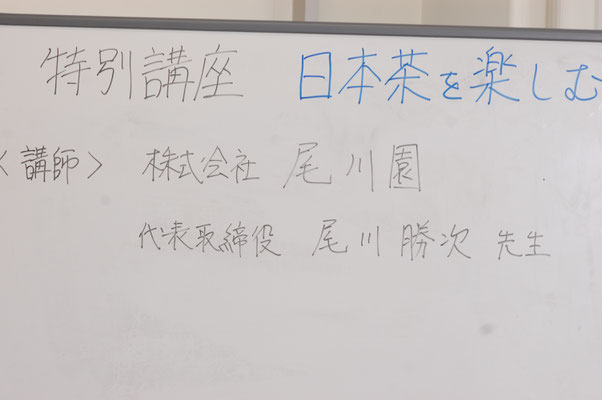 特別講座 日本茶を楽しむ
〈講師〉 株式会社 尾川園
代表取締役 尾川勝次 先生